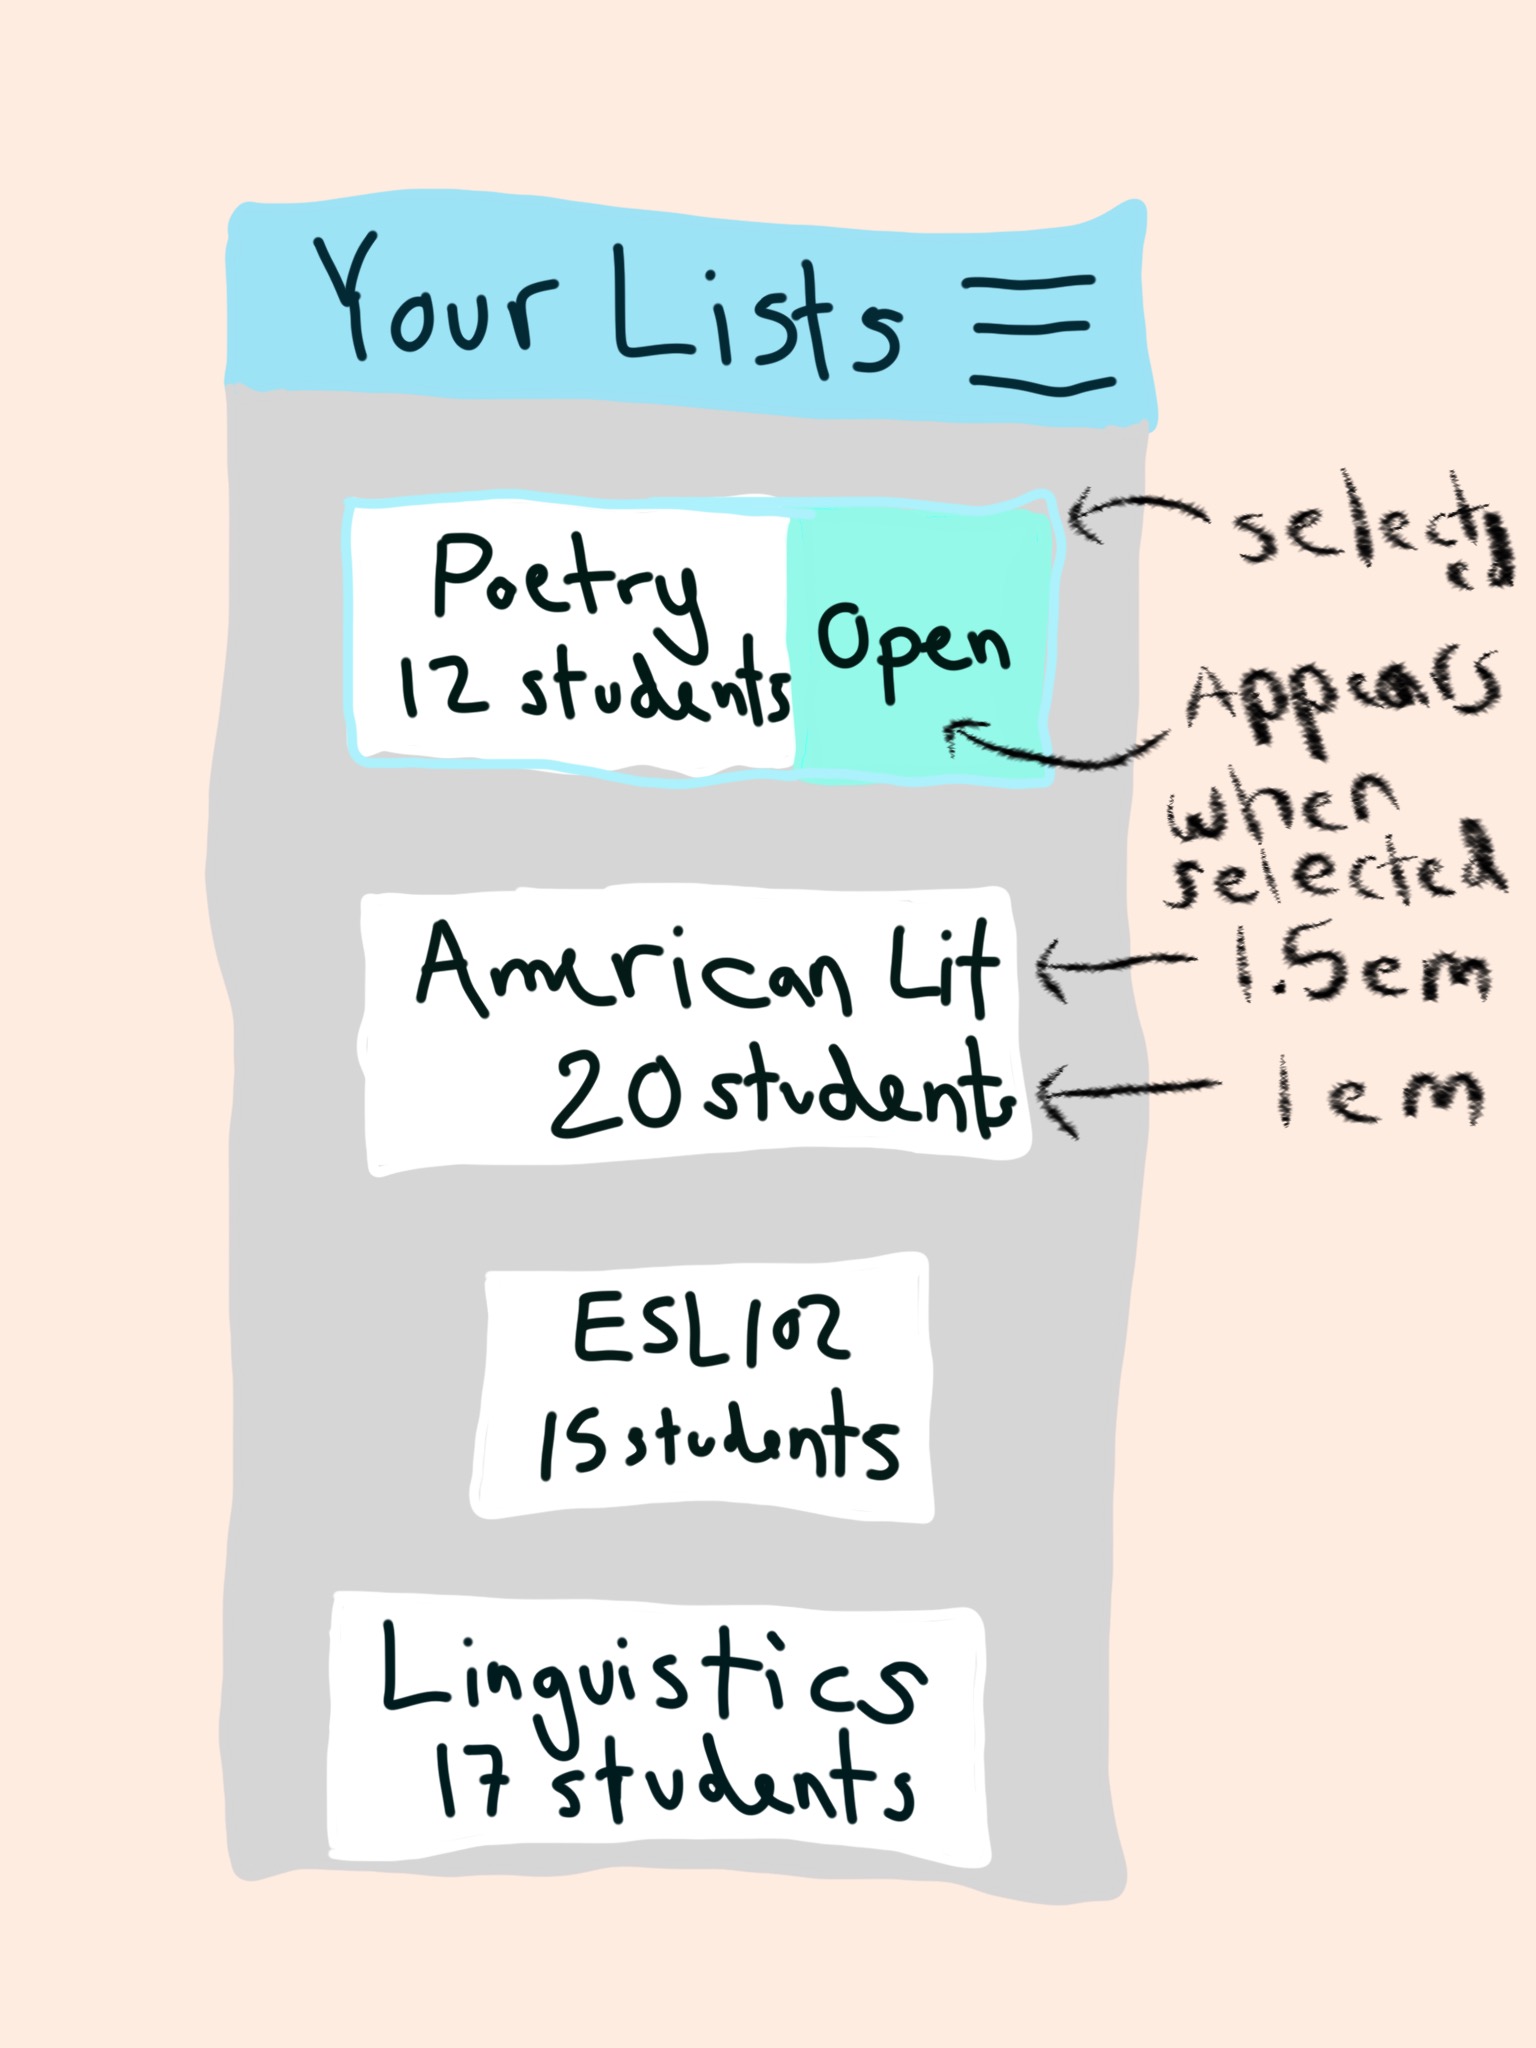 Your Lists
Poetry
12 students
Open
selected
Appears
when
selected
American Lit
1.5em
20 students
1em
ESL102
15 students
Linguistics
17 students